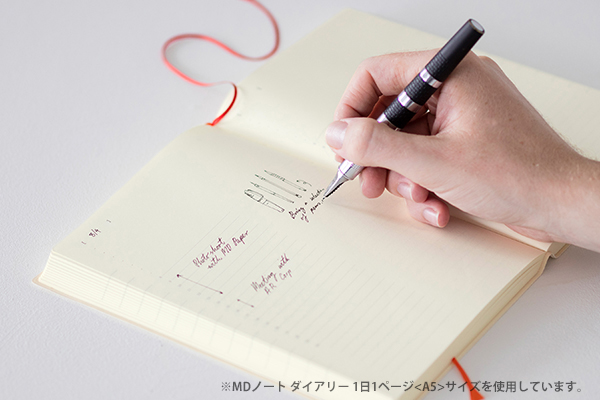 8/4
Bring a selection
of pens
Photo shoot
with MD Paper
Meeting with
A.R.T Corp
※MDノート ダイアリー 1日1ページ<A5>サイズを使用しています。